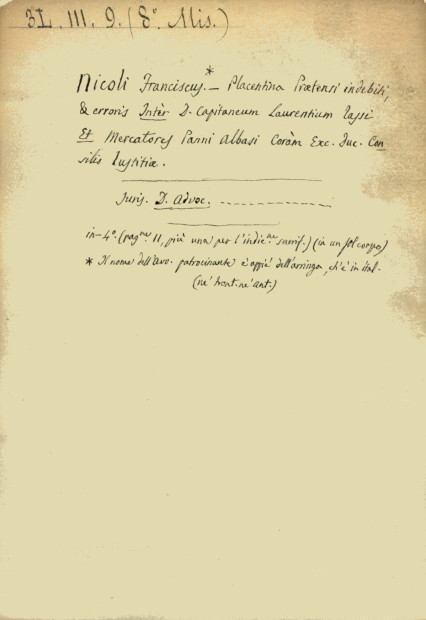 3L. III. 9. (8° Mis.)
Nicoli Franciscus.* — Placentina Prætensi indebiti,
& erroris Intèr D. Capitaneum Laurentium Tassi
Et Mercatores Panni Albasi Coràm Exc. Duc. Con
silio Iustitiæ.
Juris. D. Advoc.
in-4° (pagne 11, più una per l'indicne ) (in un sol corpo)
* Il nome dell'avv. patrocinante è appiè dell'arringa, ch'è in ital.
(nè front. nè ant.)